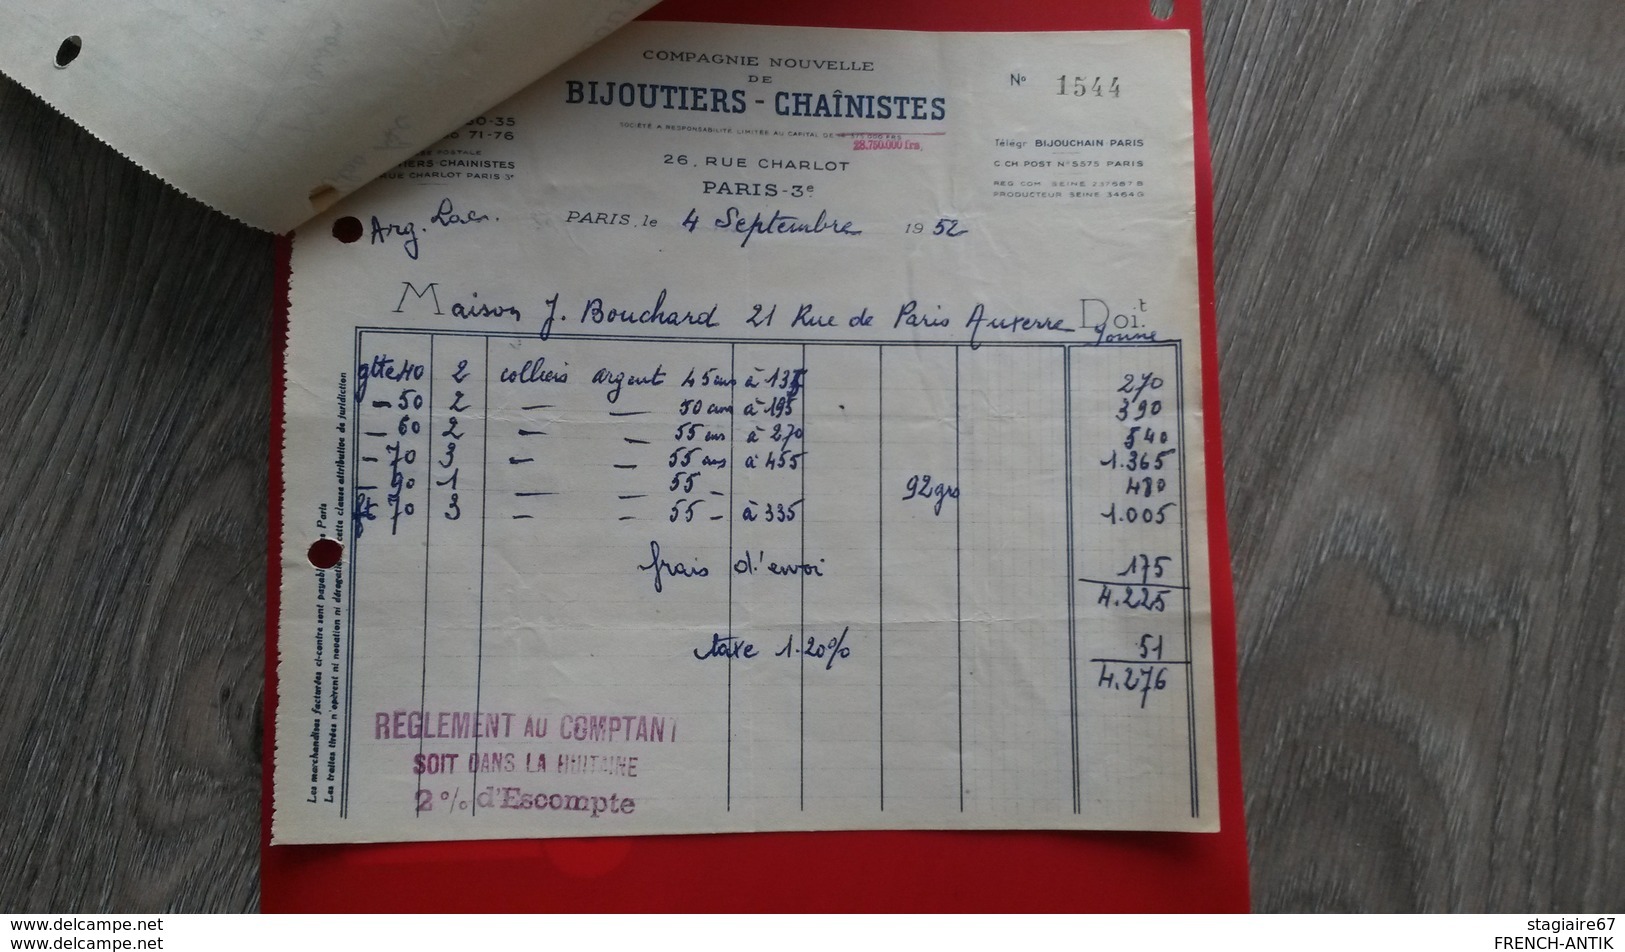 COMPAGNIE NOUVELLE
DE
BIJOUTIERS - CHAÎNISTES
SOCIÉTÉ A RESPONSABILITÉ LIMITÉE AU CAPITAL DE
28.750.000 frs.
26, RUE CHARLOT
PARIS-3e
No 1544
Télégr BIJOUCHAIN PARIS
C. CH POST No 5575 PARIS
REG COM SEINE 237687 B
PRODUCTEUR SEINE 3464 G
0-35
71-76
POSTALE
TIERS-CHAINISTES
RUE CHARLOT PARIS 3e
Arg.
PARIS, le 4 Septembre 1952
Maison J. Bouchard 21 Rue de Paris Auxerre Doit
Yonne
gtte 40 2 colliers argent 45 cms à 135 270
— 50 2 — — 50 cms à 195 390
— 60 2 — — 55 cms à 270 540
— 70 3 — — 55 cms à 455 1.365
— 90 1 — — 55 — 92 grs 480
ft 70 3 — — 55 — à 335 1.005
frais d'envoi 175
4.225
taxe 1.20% 51
4.276
REGLEMENT AU COMPTANT
SOIT DANS LA HUITAINE
2% d'Escompte
Les marchandises facturées ci-contre sont payables Paris
Les traites tirées n'opèrent ni novation ni dérogation cette clause attributive de juridiction
delcampe.net
stagiaire67
delcampe.net
FRENCH-ANTIK